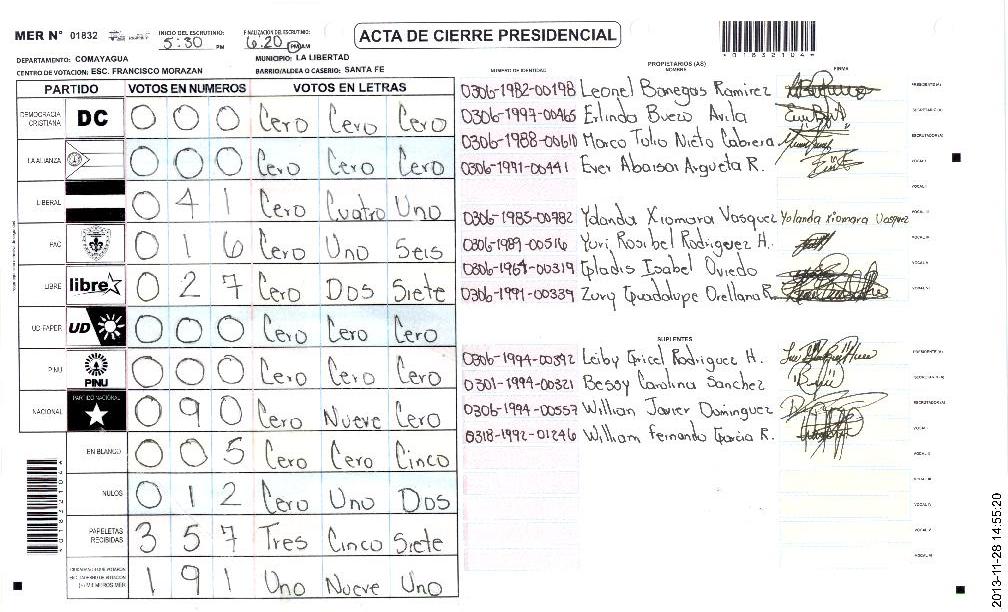 MER N° 01832 INICIO DEL ESCRUTINIO: 5:30 PM FINALIZACION DEL ESCRUTINIO: 6:20 PM AM
ACTA DE CIERRE PRESIDENCIAL
DEPARTAMENTO: COMAYAGUA MUNICIPIO: LA LIBERTAD
CENTRO DE VOTACION: ESC. FRANCISCO MORAZAN BARRIO/ALDEA O CASERIO: SANTA FE
PARTIDO VOTOS EN NUMEROS VOTOS EN LETRAS
DEMOCRACIA CRISTIANA DC 0 0 0 Cero Cero Cero
LA ALIANZA 0 0 0 Cero Cero Cero
LIBERAL 0 4 1 Cero Cuatro Uno
PAC 0 1 6 Cero Uno Seis
LIBRE libre 0 2 7 Cero Dos Siete
UD-FAPER UD 0 0 0 Cero Cero Cero
PINU PINU 0 0 0 Cero Cero Cero
NACIONAL PARTIDO NACIONAL 0 9 0 Cero Nueve Cero
EN BLANCO 0 0 5 Cero Cero Cinco
NULOS 0 1 2 Cero Uno Dos
PAPELETAS RECIBIDAS 3 5 7 Tres Cinco Siete
1 9 1 Uno Nueve Uno
PROPIETARIOS (AS)
NUMERO DE IDENTIDAD NOMBRE FIRMA
0306-1982-00198 Leonel Banegas Ramirez PRESIDENTE(A)
0306-1997-00465 Erlinda Buezo Avila SECRETARIO(A)
0306-1988-00610 Marco Tulio Nieto Cabrera ESCRUTADOR(A)
0306-1991-00441 Ever Abaisai Argueta R. VOCAL I
VOCAL II
0306-1985-00782 Yolanda Xiomara Vasquez Yolanda Xiomara Vasquez VOCAL III
0306-1989-00516 Yuri Rosibel Rodriguez H. VOCAL IV
0306-1964-00319 Gladis Isabel Oviedo VOCAL V
0306-1991-00339 Zury Guadalupe Orellana R. VOCAL VI
SUPLENTES
0306-1994-00392 Leiby Gricel Rodriguez H. PRESIDENTE(A)
0301-1994-00321 Bessy Carolina Sanchez SECRETARIO(A)
0306-1994-00557 Willian Javier Dominguez ESCRUTADOR(A)
0318-1992-01246 William Fernando Garcia R. VOCAL I
VOCAL II
VOCAL III
VOCAL IV
VOCAL V
VOCAL VI
2013-11-28 14:55:20